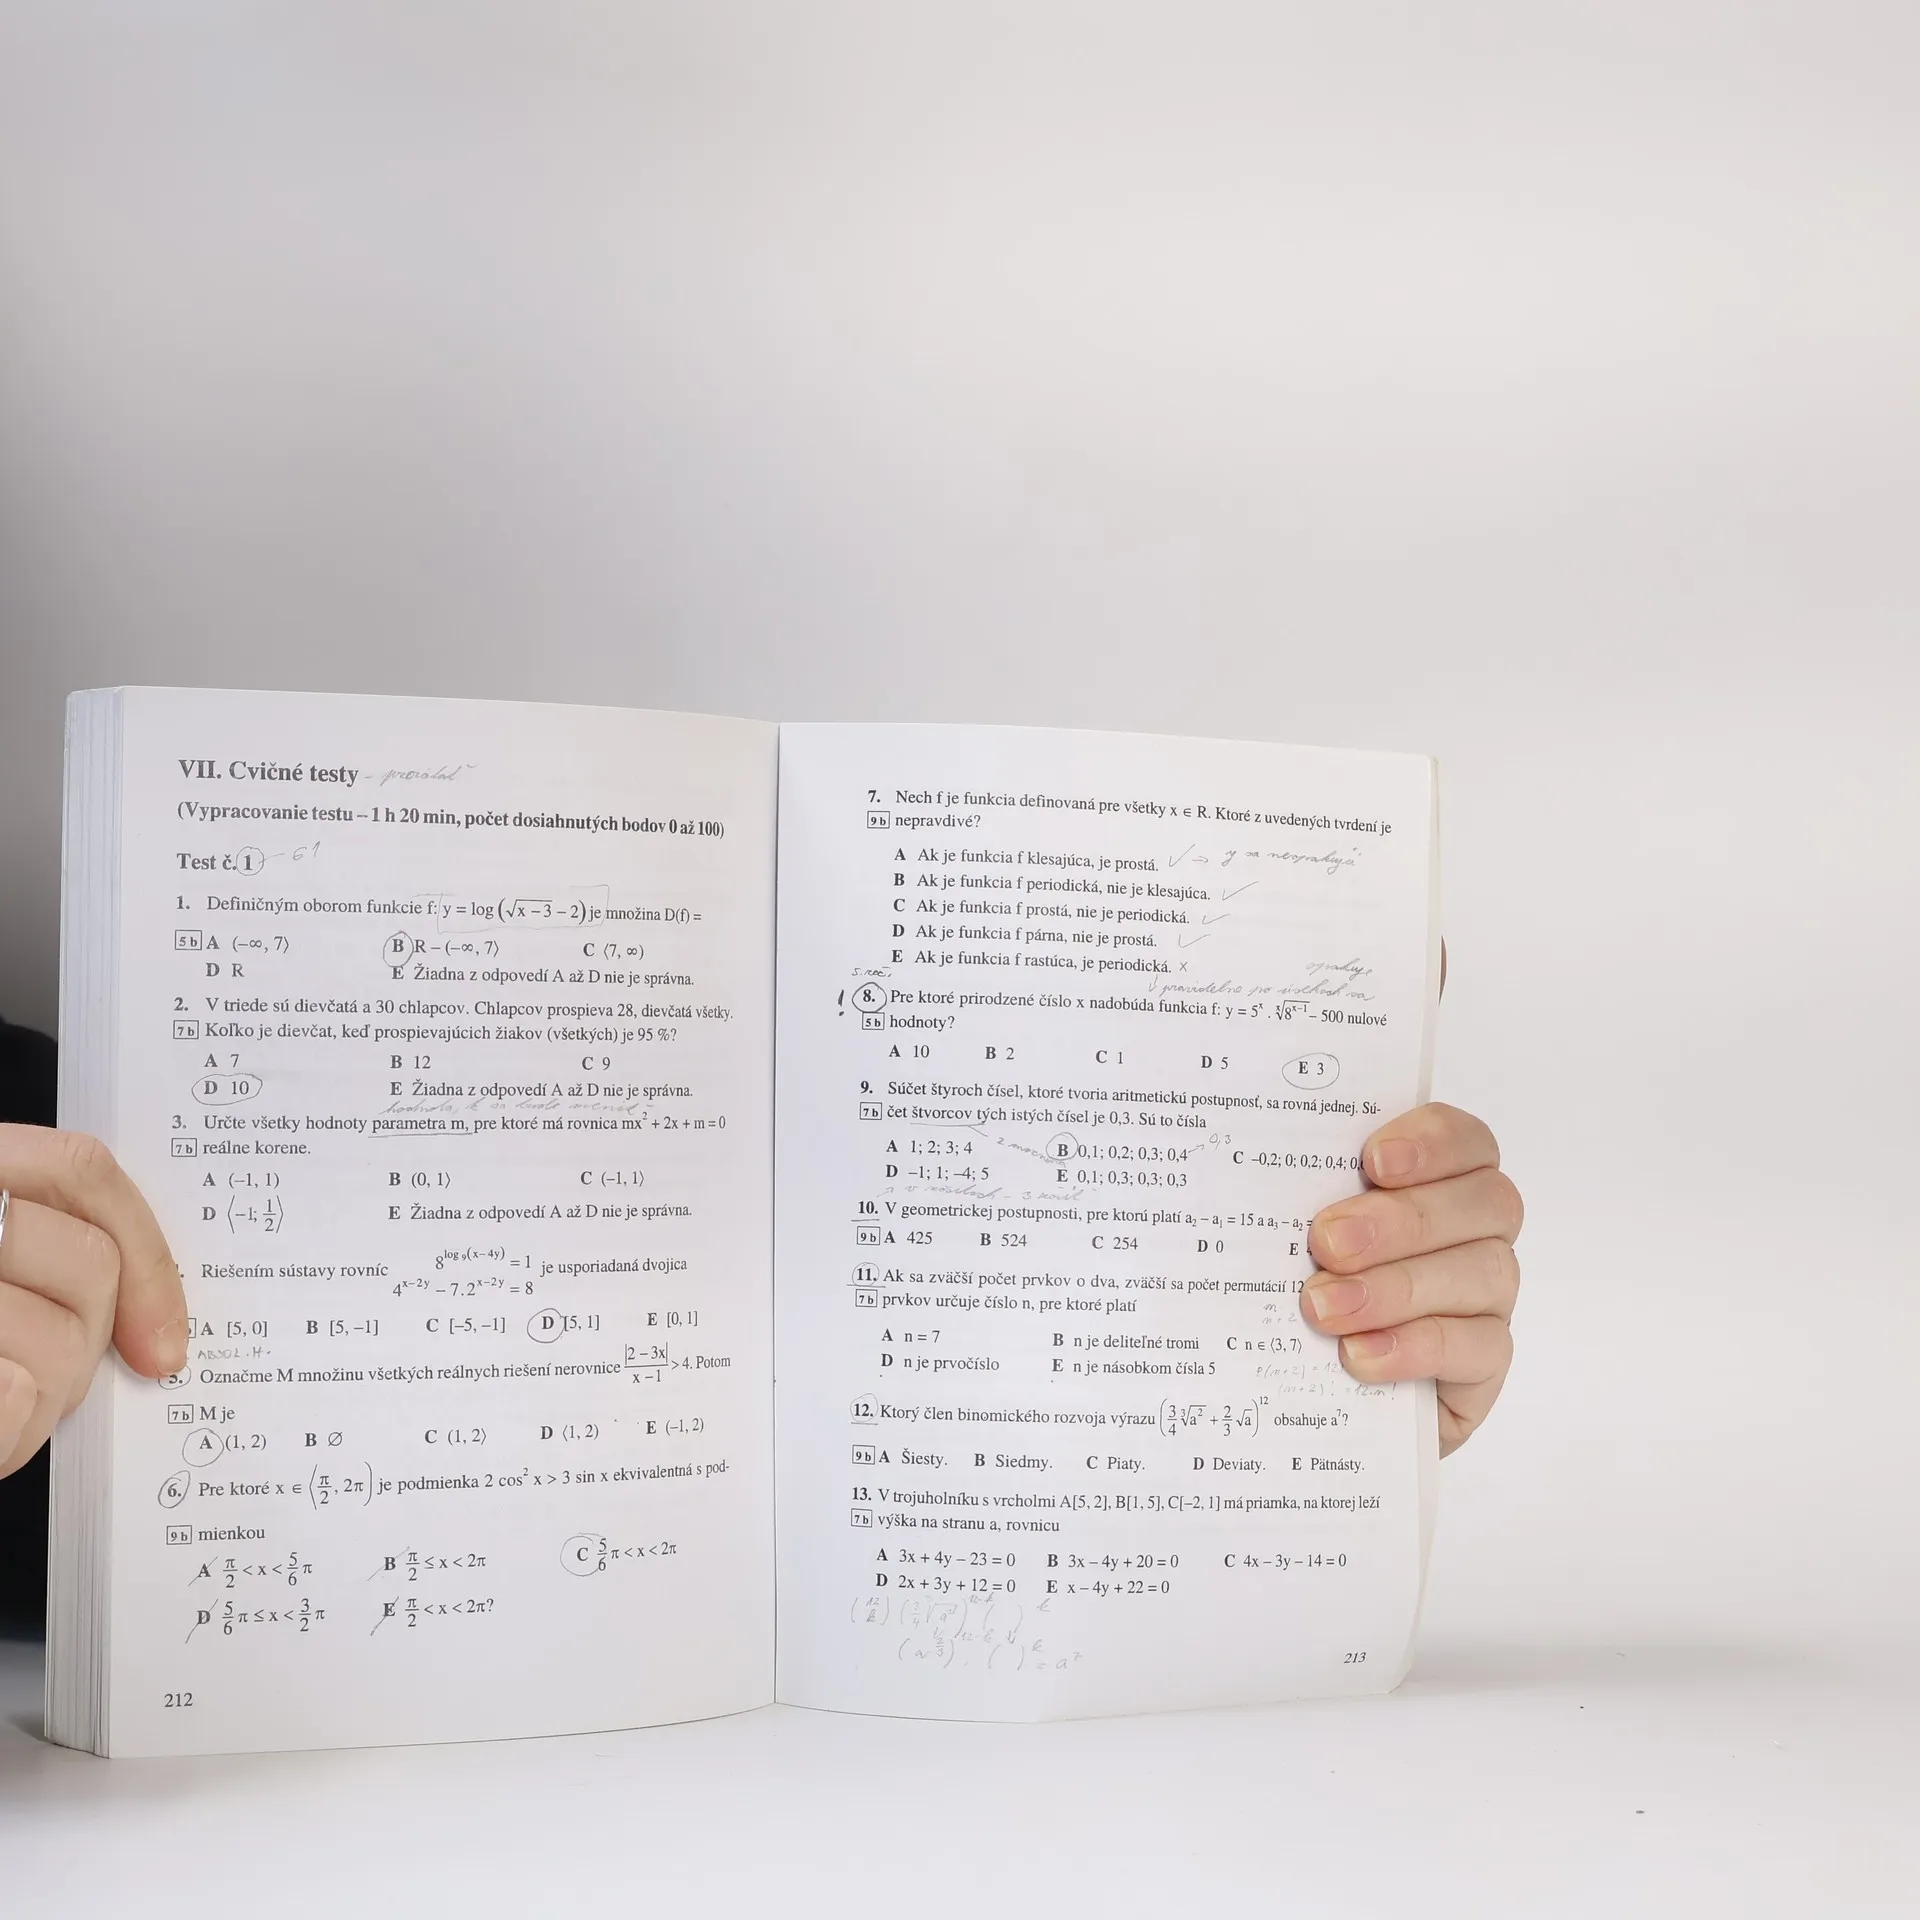 VII. Cvičné testy
(Vypracovanie testu – 1 h 20 min, počet dosiahnutých bodov 0 až 100)
Test č. 1 – 61
1. Definičným oborom funkcie f: y = log (√x – 3 – 2) je množina D(f) =
5 b A (–∞, 7⟩ B R – (–∞, 7⟩ C ⟨7, ∞)
D R E Žiadna z odpovedí A až D nie je správna.
2. V triede sú dievčatá a 30 chlapcov. Chlapcov prospieva 28, dievčatá všetky.
7 b Koľko je dievčat, keď prospievajúcich žiakov (všetkých) je 95 %?
A 7 B 12 C 9
D 10 E Žiadna z odpovedí A až D nie je správna.
3. Určte všetky hodnoty parametra m, pre ktoré má rovnica mx² + 2x + m = 0
7 b reálne korene.
A (–1, 1) B (0, 1⟩ C (–1, 1⟩
D ⟨–1; 1/2⟩ E Žiadna z odpovedí A až D nie je správna.
Riešením sústavy rovníc 8^log₉(x – 4y) = 1 je usporiadaná dvojica
4^x–2y – 7.2^x–2y = 8
A [5, 0] B [5, –1] C [–5, –1] D [5, 1] E [0, 1]
ABSOL. H.
5. Označme M množinu všetkých reálnych riešení nerovnice |2 – 3x|/x – 1 > 4. Potom
7 b M je
A (1, 2) B ∅ C (1, 2⟩ D ⟨1, 2) E (–1, 2)
6. Pre ktoré x ∈ ⟨π/2, 2π) je podmienka 2 cos² x > 3 sin x ekvivalentná s pod-
9 b mienkou
A π/2 < x < 5/6 π B π/2 ≤ x < 2π C 5/6 π < x < 2π
D 5/6 π ≤ x < 3/2 π E π/2 < x < 2π?
212
7. Nech f je funkcia definovaná pre všetky x ∈ R. Ktoré z uvedených tvrdení je
9 b nepravdivé?
A Ak je funkcia f klesajúca, je prostá. ✓ → y sa
B Ak je funkcia f periodická, nie je klesajúca. ✓
C Ak je funkcia f prostá, nie je periodická. ✓
D Ak je funkcia f párna, nie je prostá. ✓
E Ak je funkcia f rastúca, je periodická. x
! 8. Pre ktoré prirodzené číslo x nadobúda funkcia f: y = 5^x . ˣ√8^x–1 – 500 nulové
5 b hodnoty?
A 10 B 2 C 1 D 5 E 3
9. Súčet štyroch čísel, ktoré tvoria aritmetickú postupnosť, sa rovná jednej. Sú-
7 b čet štvorcov tých istých čísel je 0,3. Sú to čísla
A 1; 2; 3; 4 B 0,1; 0,2; 0,3; 0,4 → 0,3 C –0,2; 0; 0,2; 0,4;
D –1; 1; –4; 5 E 0,1; 0,3; 0,3; 0,3
10. V geometrickej postupnosti, pre ktorú platí a₂ – a₁ = 15 a a₃ – a₂ =
9 b A 425 B 524 C 254 D 0 E
11. Ak sa zväčší počet prvkov o dva, zväčší sa počet permutácií 12
7 b prvkov určuje číslo n, pre ktoré platí
A n = 7 B n je deliteľné tromi C n ∈ ⟨3, 7⟩
D n je prvočíslo E n je násobkom čísla 5
(n+2)! = 12.n!
12. Ktorý člen binomického rozvoja výrazu (3/4 ∛a² + 2/3 √a)¹² obsahuje a⁷?
9 b A Šiesty. B Siedmy. C Piaty. D Deviaty. E Pätnásty.
13. V trojuholníku s vrcholmi A[5, 2], B[1, 5], C[–2, 1] má priamka, na ktorej leží
7 b výška na stranu a, rovnicu
A 3x + 4y – 23 = 0 B 3x – 4y + 20 = 0 C 4x – 3y – 14 = 0
D 2x + 3y + 12 = 0 E x – 4y + 22 = 0
213